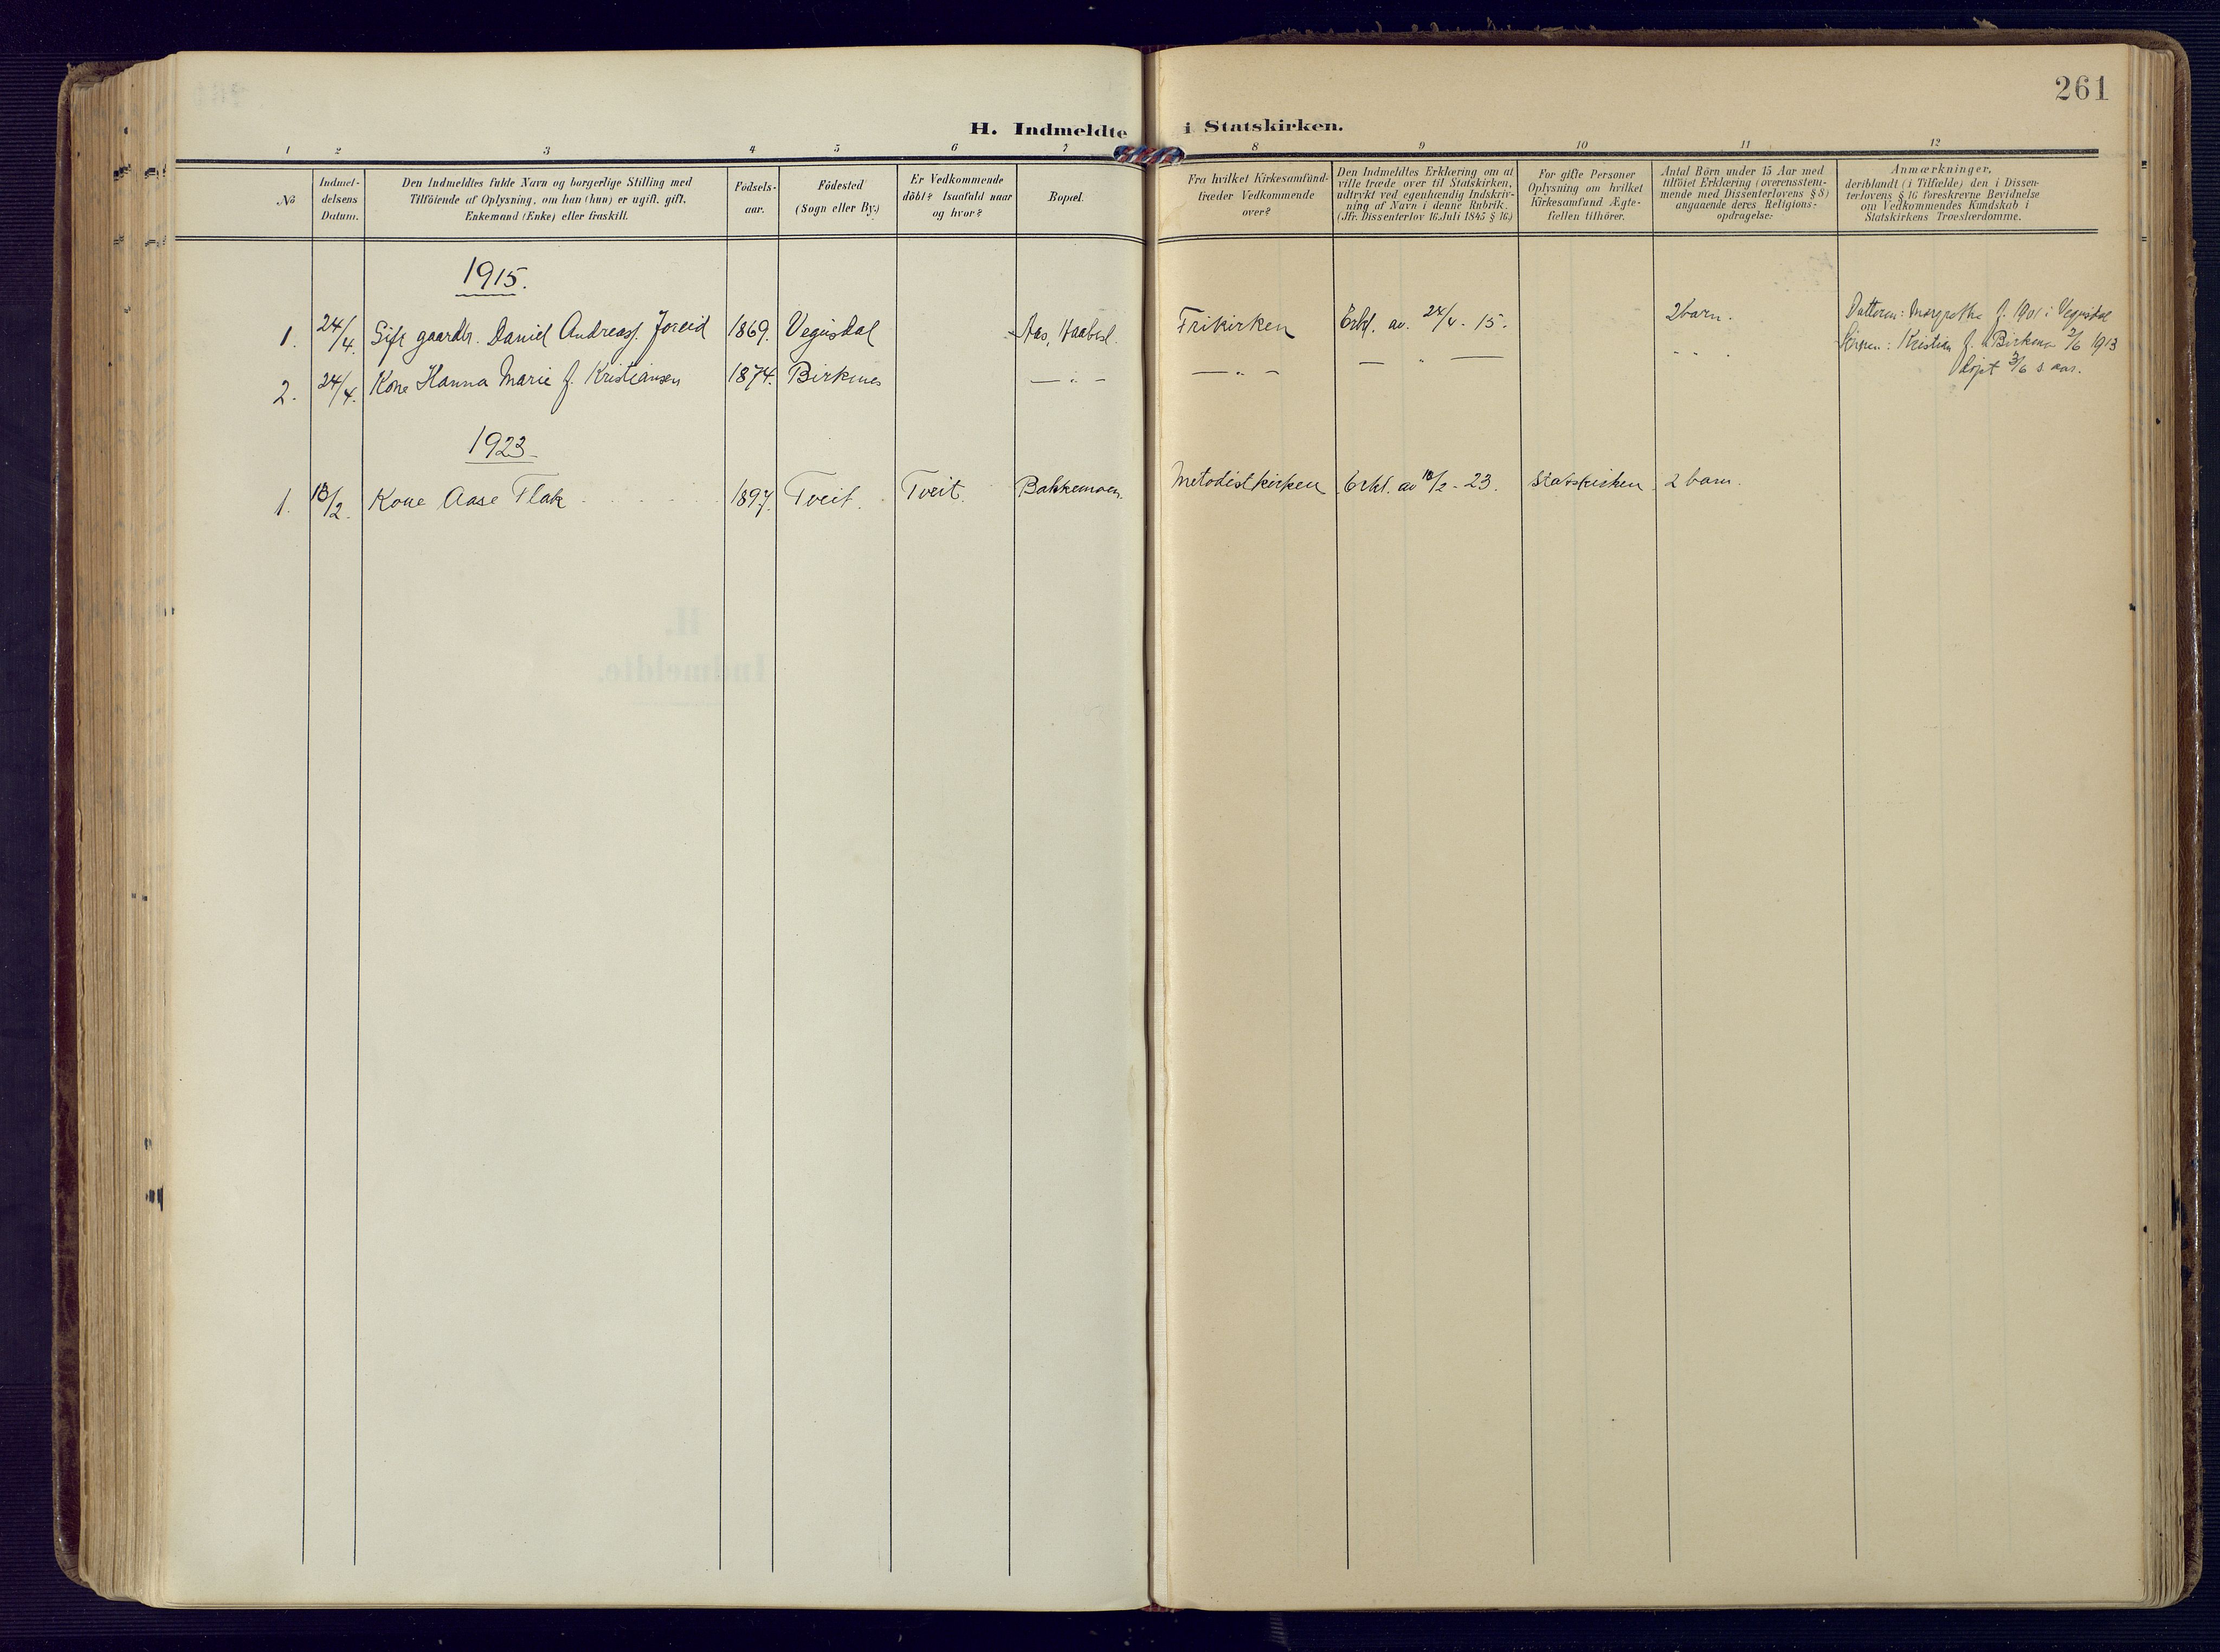 261
H. Indmeldte i Statskirken.
1 2 3 4 5 6 7 8 9 10 11 12
No
Indmel-
delsens
Datum.
Den Indmeldtes fulde Navn og borgerlige Stilling med
Tilföiende af Oplysning, om han (hun) er ugift, gift,
Enkemand (Enke) eller fraskilt.
Födsels-
aar.
Födested
(Sogn eller By.)
Er Vedkommende
döbt? Isaafald naar
og hvor?
Bopæl.
Fra hvilket Kirkesamfund
træder Vedkommende
over?
Den Indmeldtes Erklæring om at
ville træde over til Statskirken,
udtrykt ved egenhændig Indskriv-
ning af Navn i denne Rubrik.
(Jfr. Dissenterlov 16 Juli 1845 § 16.)
For gifte Personer
Oplysning om hvilket
Kirkesamfund Ægte-
fællen tilhörer.
Antal Börn under 15 Aar med
tilföiet Erklæring (overensstem-
mende med Dissenterlovens § 8)
angaaende deres Religions-
opdragelse.
Anmærkninger,
deriblandt (i Tilfælde) den i Dissen-
terlovens § 16 foreskrevne Bevidnelse
om Vedkommendes Kundskab i
Statskirkens Troeslærdomme.
1915.
1. 24/4. Gift gaardbr. Daniel Andreas Joreid 1869. Vegusdal Aas, Frikirken Erkl. av. 24/4. 15. 2 barn. Datteren: Margrethe f. 1901 i Vegusdal
Kristian f. i Birkenes 2/6 1913
döpt 3/6 s. aar.
2. 24/4. Kone Hanna Marie f. Kristiansen 1874. Birkenes — „ — — „ — — „ — „ „
1923
1. 13/2. Kone Aase Flak 1897. Tveit. Tveit. Bakkemoen. Metodistkirken Erkl. av 13/2 - 23. Statskirken 2 barn.